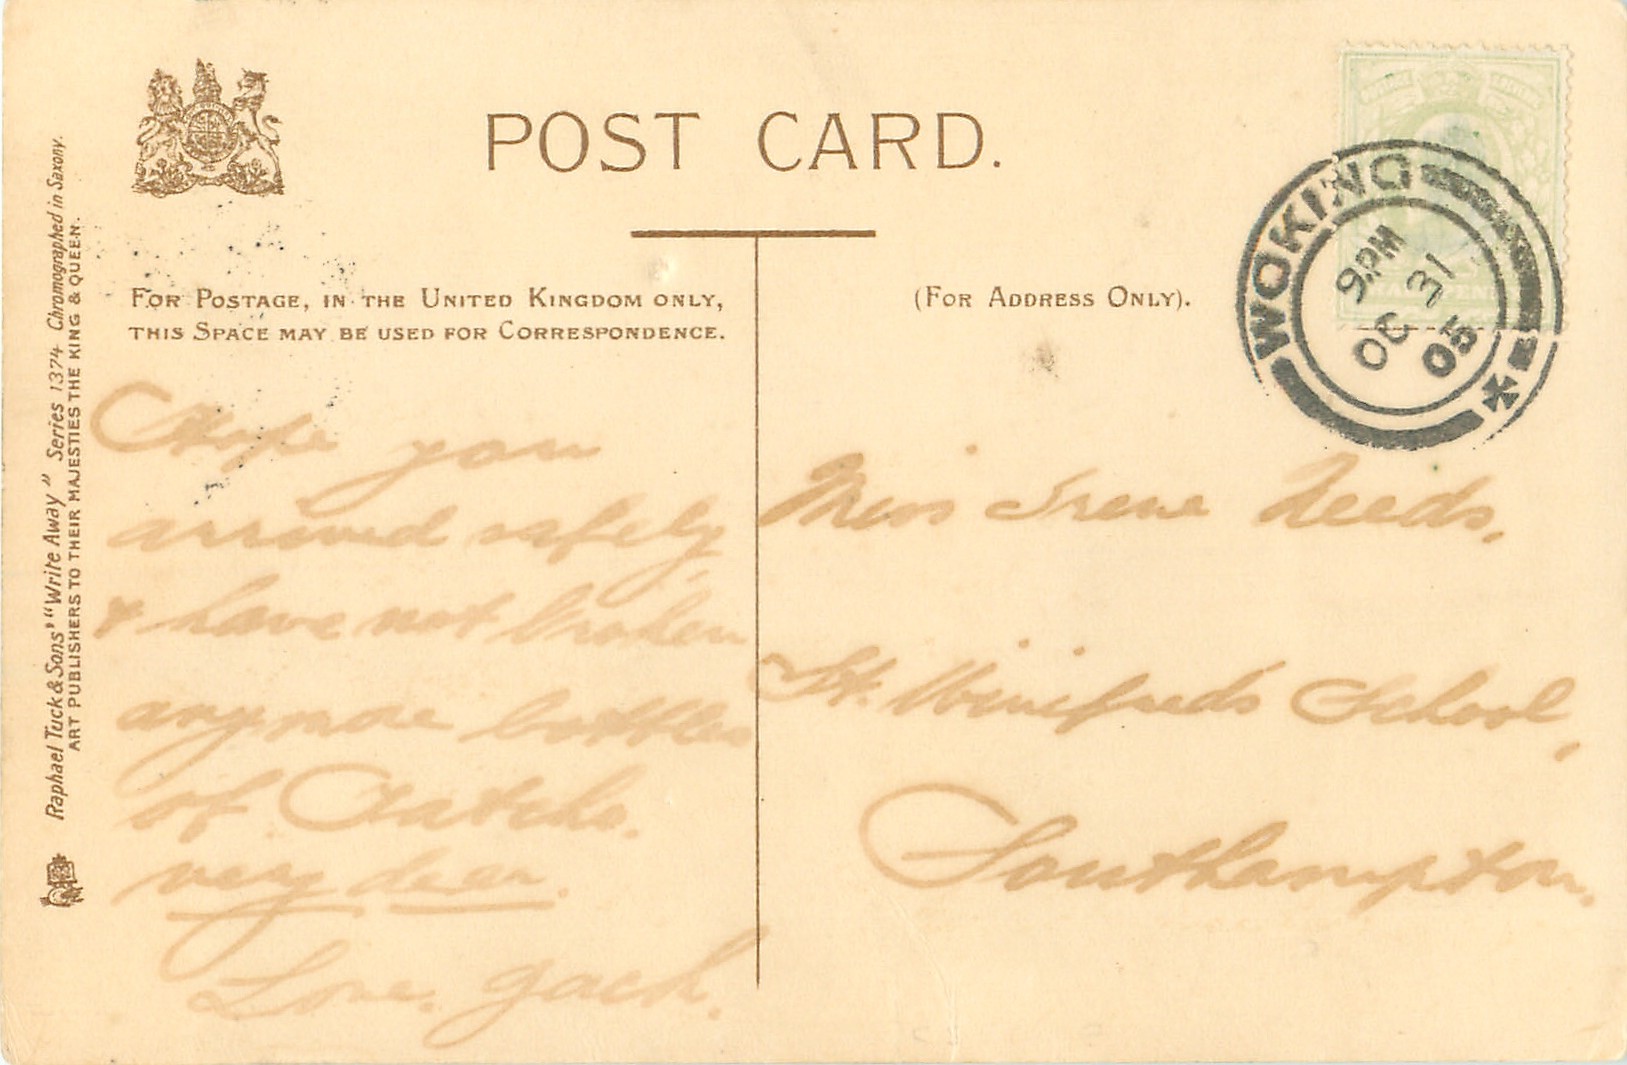 POST CARD.
FOR POSTAGE, IN THE UNITED KINGDOM ONLY,
THIS SPACE MAY BE USED FOR CORRESPONDENCE.
(FOR ADDRESS ONLY).
Raphael Tuck & Sons' "Write Away" Series 1374 Chromographed in Saxony.
ART PUBLISHERS TO THEIR MAJESTIES THE KING & QUEEN.
WOKING
9.PM
OC 31
05
Hope you
arrived safely
& have not broken
anymore bottles
of
very dear.
Love.
Miss Irene Needs,
St. Winifreds School,
Southampton.